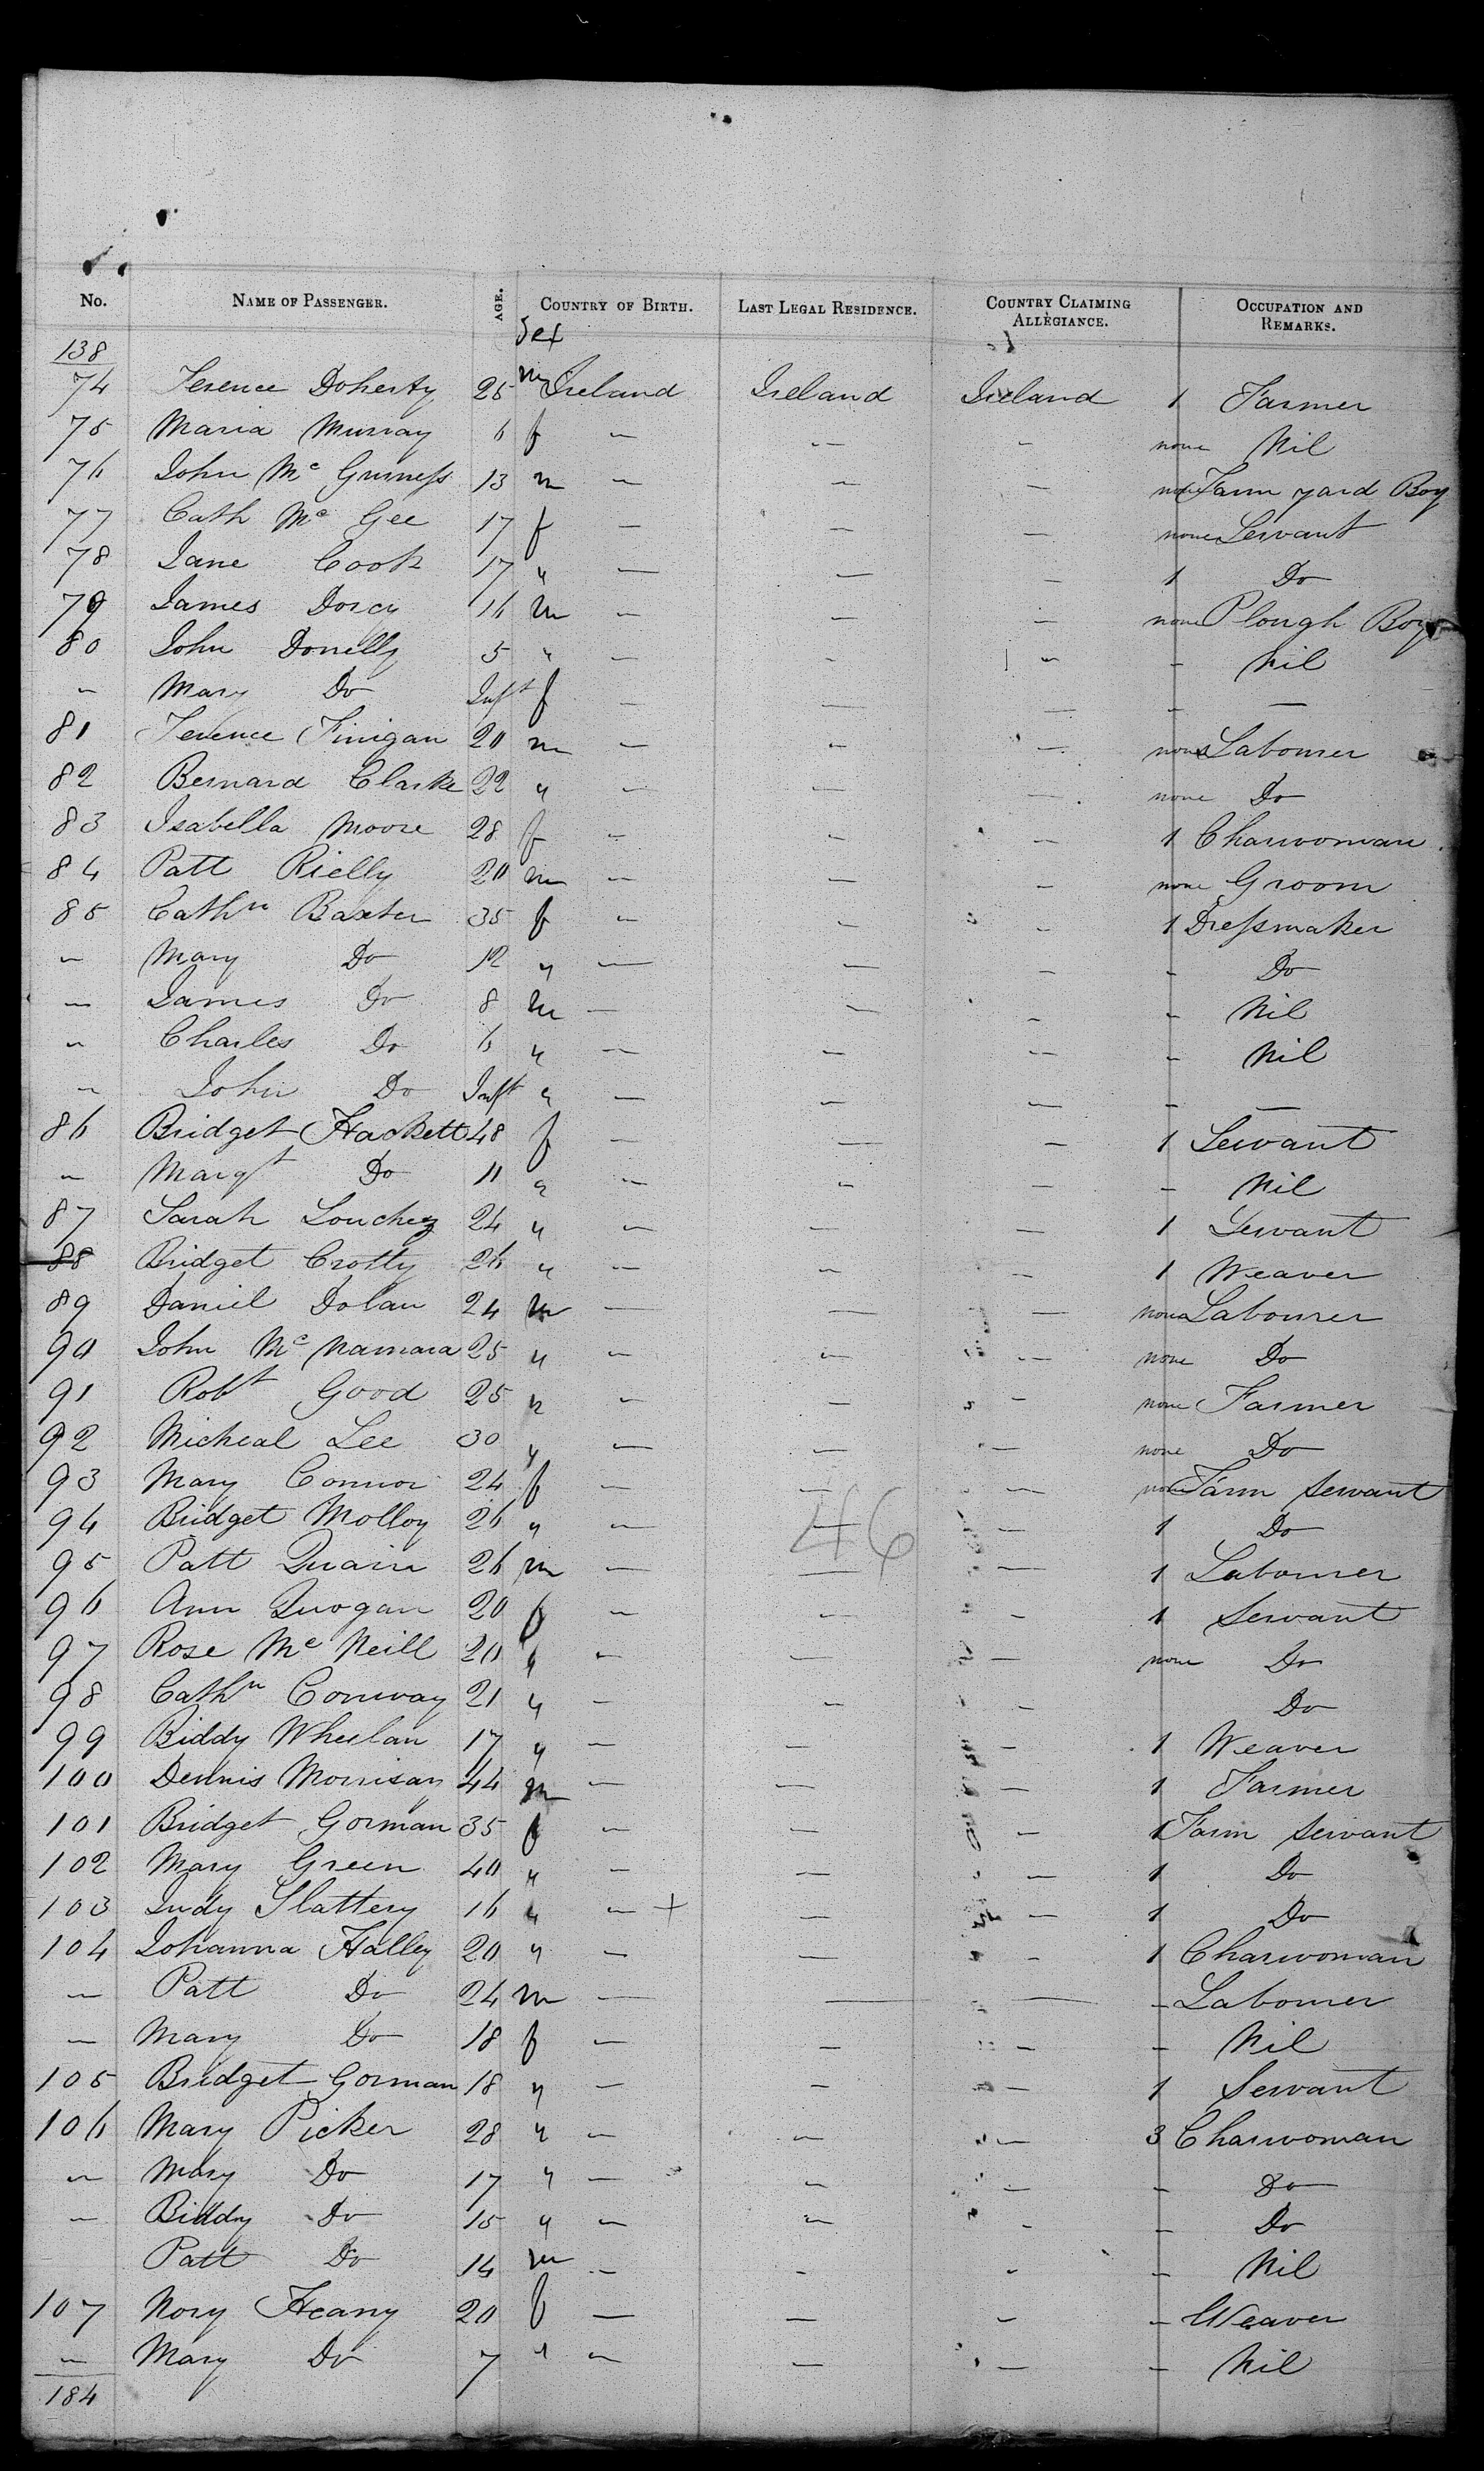 No. NAME OF PASSENGER. AGE. COUNTRY OF BIRTH. LAST LEGAL RESIDENCE. COUNTRY CLAIMING ALLEGIANCE. OCCUPATION AND REMARKS.
Sex
138
74 Terence Doherty 25 m Ireland Ireland Ireland 1 Farmer
75 Maria Murray 6 f — — — none Nil
76 John Mc Guiness 13 m — — — none Farm yard Boy
77 Cath Mc Gee 17 f — — — none Servant
78 Jane Cook 17 " — — — 1 Do
79 James Dorcy 16 m — — — none Plough Boy
80 John Donelly 5 " — — — - Nil
" Mary Do Inft f — — — - —
81 Terence Finigan 20 m — — — none Labourer
82 Bernard Clarke 22 " — — — none Do
83 Isabella Moore 28 f — — — 1 Charwoman
84 Patt Rielly 20 m — — — none Groom
85 Cathn Baxter 35 f — — — 1 Dressmaker
" Mary Do 12 " — — — - Do
" James Do 8 m — — — - Nil
" Charles Do 6 " — — — - Nil
" John Do Inft " — — — - —
86 Bridget Hackett 48 f — — — 1 Servant
" Margt Do 11 " — — — - Nil
87 Sarah Louchey 24 " — — — 1 Servant
88 Bridget Crotty 26 " — — — 1 Weaver
89 Daniel Dolan 24 m — — — none Labourer
90 John Mc Namara 25 " — — — none Do
91 Robt Good 25 " — — — none Farmer
92 Micheal Lee 30 " — — — none Do
93 Mary Connor 24 f — — — none Farm Servant
94 Bridget Molloy 26 " — — — 1 Do
46
95 Patt Quain 26 m — — — 1 Labourer
96 Ann Quogan 20 f — — — 1 Servant
97 Rose Mc Neill 20 " — — — none Do
98 Cathn Conway 21 " — — — Do
99 Biddy Wheelan 17 " — — — 1 Weaver
100 Dennis Morrisan 44 m — — — 1 Farmer
101 Bridget Gorman 35 f — — — 1 Farm Servant
102 Mary Green 40 " — — — 1 Do
103 Judy Slattery 16 " — + — — 1 Do
104 Johanna Halley 20 " — — — 1 Charwoman
" Patt Do 24 m — — — - Labourer
" Mary Do 18 f — — — - Nil
105 Bridget Gorman 18 " — — — 1 Servant
106 Mary Picker 28 " — — — 3 Charwoman
" Mary Do 17 " — — — - Do
" Biddy Do 15 " — — — - Do
Patt Do 14 m — — — - Nil
107 Nory Heany 20 f — — — - Weaver
" Mary Do 7 " — — — - Nil
184